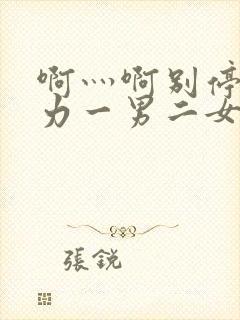 啊灬啊别停
力一男二女
張銳